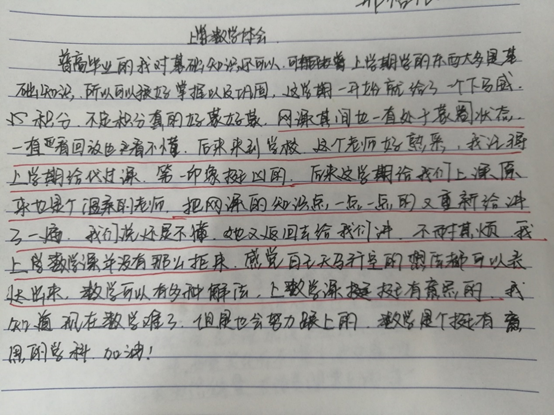 上学数学体会
普高毕业的我对基础知识还可以,可能也曾上学期学的东西大多是基
础知识,所以可以挺好掌握以及巩固,这学期一开始就给了一个下马威
积分,不定积分真的好难好难,网课其间也一直处于蒙圈状态,
一直看回放也看不懂,后来来到学校,这个老师好熟悉,我记得
上学期给代过课,第一印象挺凶的,后来这学期给我们上课原
来也是个温柔的老师,把网课的知识点一点一点的又重新给讲
了一遍,我们说还是不懂,她又返回去给我们讲,不耐其烦,我
上学数学课并没有那么拒来,感觉自己天马行空的想法都可以表
达出来,数学可以有多种解法,上数学课挺挺有意思的,我
知道现在数学难了,但是也会努力跟上的,数学是个挺有意
思的学科,加油!